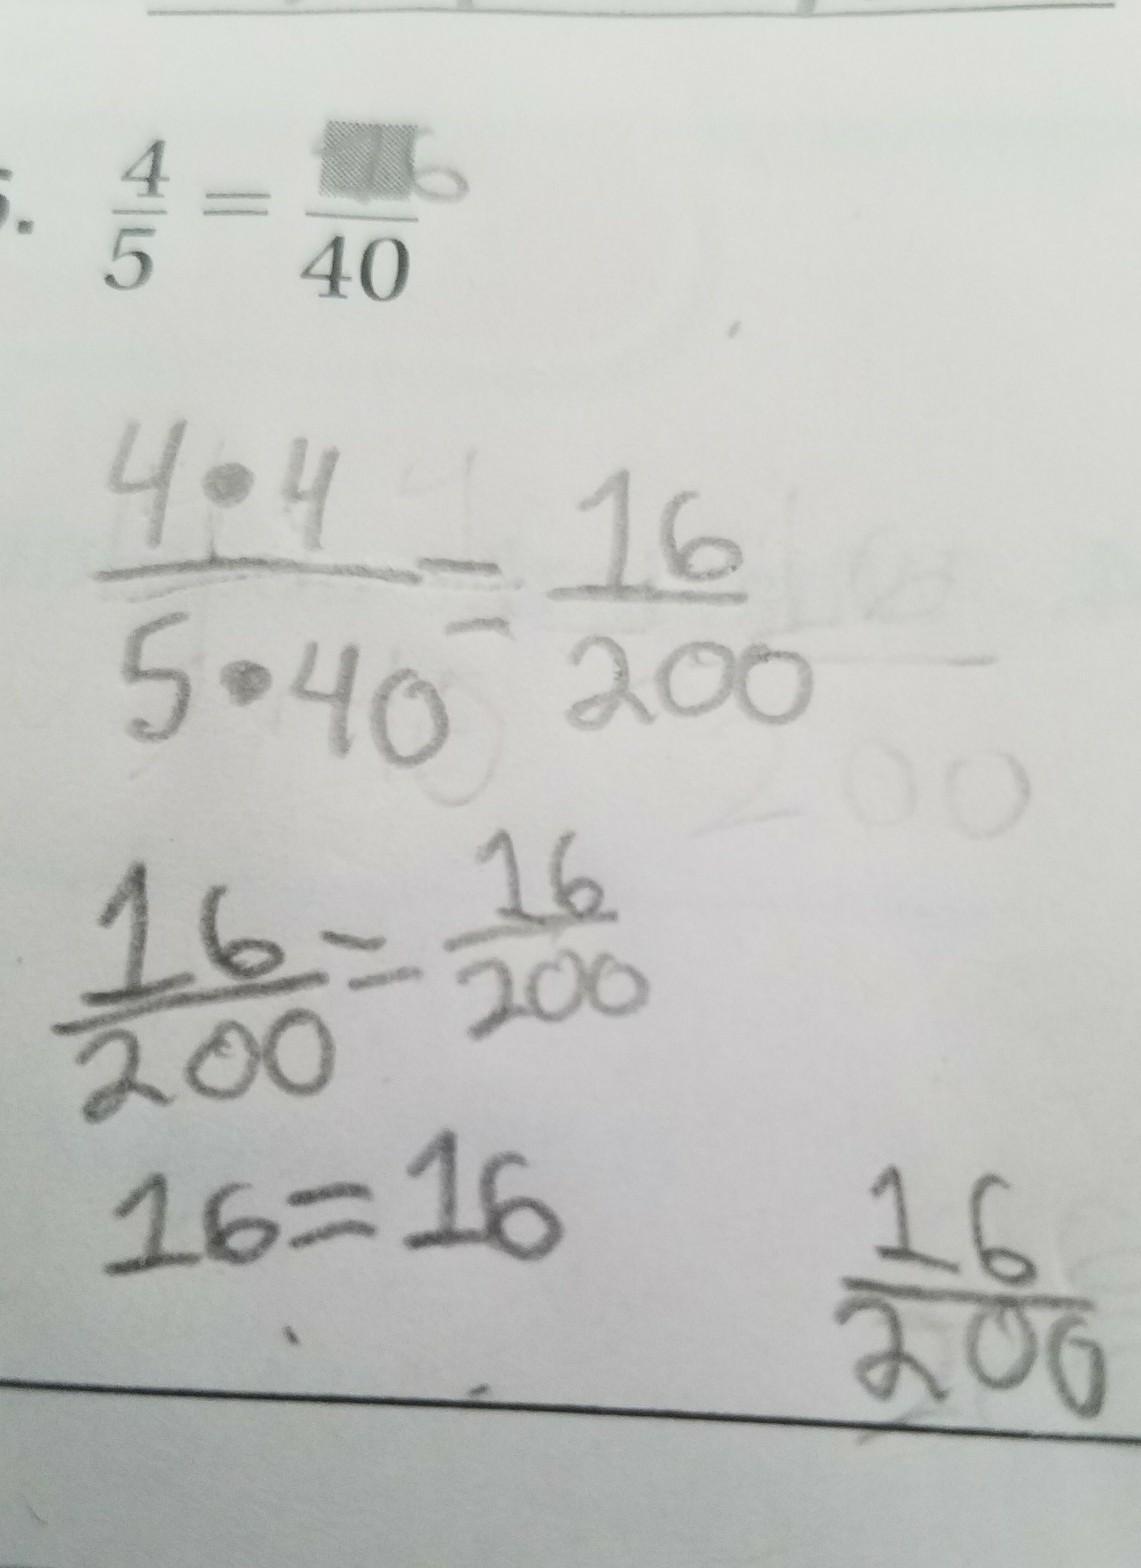 5. 4/5 = 16/40
4•4/5•40 = 16/200
16/200 = 16/200
16=16
16/200